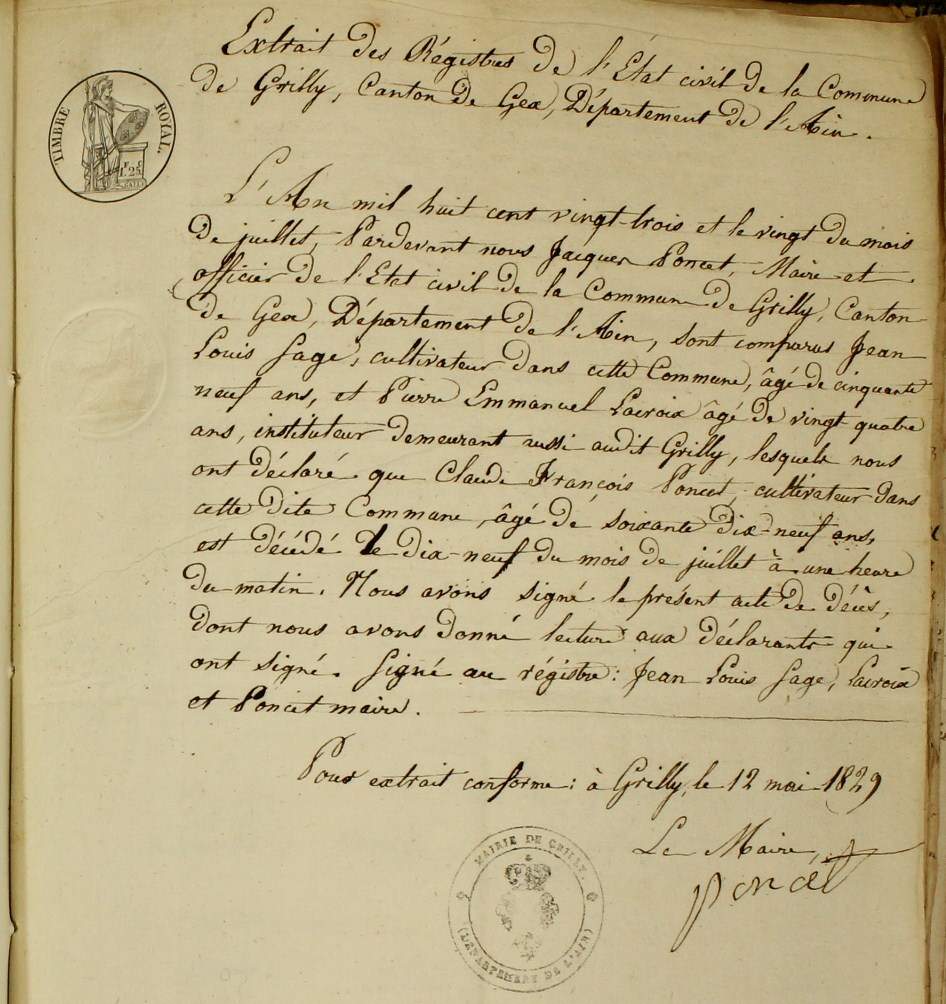 Extrait des Régistres de l'État civil de la Commune
de Grilly, Canton de Gex, Département de l'Ain.
TIMBRE ROYAL.
1F. 25C
L'An mil huit cent vingt-trois et le vingt du mois
de juillet, Pardevant nous Jacques Poncet, Maire et
officier de l'Etat civil de la Commune de Grilly, Canton
de Gex, Département de l'Ain, sont comparus Jean
Louis Sage, cultivateur dans cette Commune, âgé de cinquante
neuf ans, et Pierre Emmanuel Lacroix âgé de vingt quatre
ans, instituteur demeurant aussi audit Grilly, lesquels nous
ont déclaré que Claude François Poncet, cultivateur dans
cette dite Commune, âgé de soixante dix-neuf ans,
est décédé le dix-neuf du mois de juillet à une heure
du matin. Nous avons signé le présent acte de décès,
dont nous avons donné lecture aux déclarants qui
ont signé. Signé au régistre: Jean Louis Sage, Lacroix
et Poncet maire.
Pour extrait conforme: à Grilly, le 12 mai 1829
Le Maire
Poncet
MAIRIE DE GRILLY.
(DÉPARTEMENT DE L'AIN)